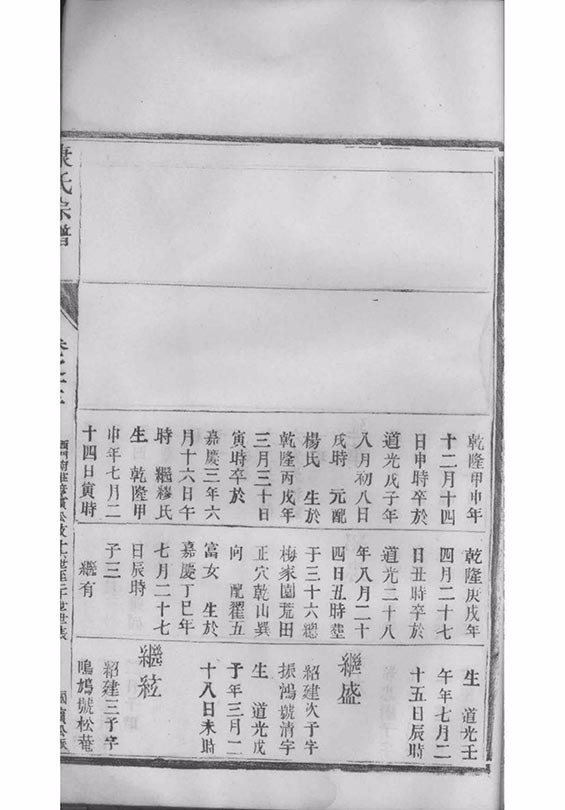 乾隆甲申年
十二月十四
日申時卒於
道光戊子年
八月初八日
戌時 元配
楊氏 生於
乾隆丙戌年
三月三十日
寅時卒於
嘉慶三年六
月十六日午
時 繼繆氏
生 乾隆甲
申年七月二
十四日寅時
乾隆庚戌年
四月二十七
日丑時卒於
道光二十八
年八月二十
四日丑時塟
于三十六總
梅家園荒田
正穴乾山巽
向 配翟五
富女 生於
嘉慶丁巳年
七月二十七
日辰時
子三
繼有
生 道光壬
午年七月二
十五日辰時
繼盛
紹建次子字
振鴻號清宇
生 道光戊
子年三月二
十八日未時
繼
紹建三子字
鳴鳩號松菴
康氏宗譜
卷之三